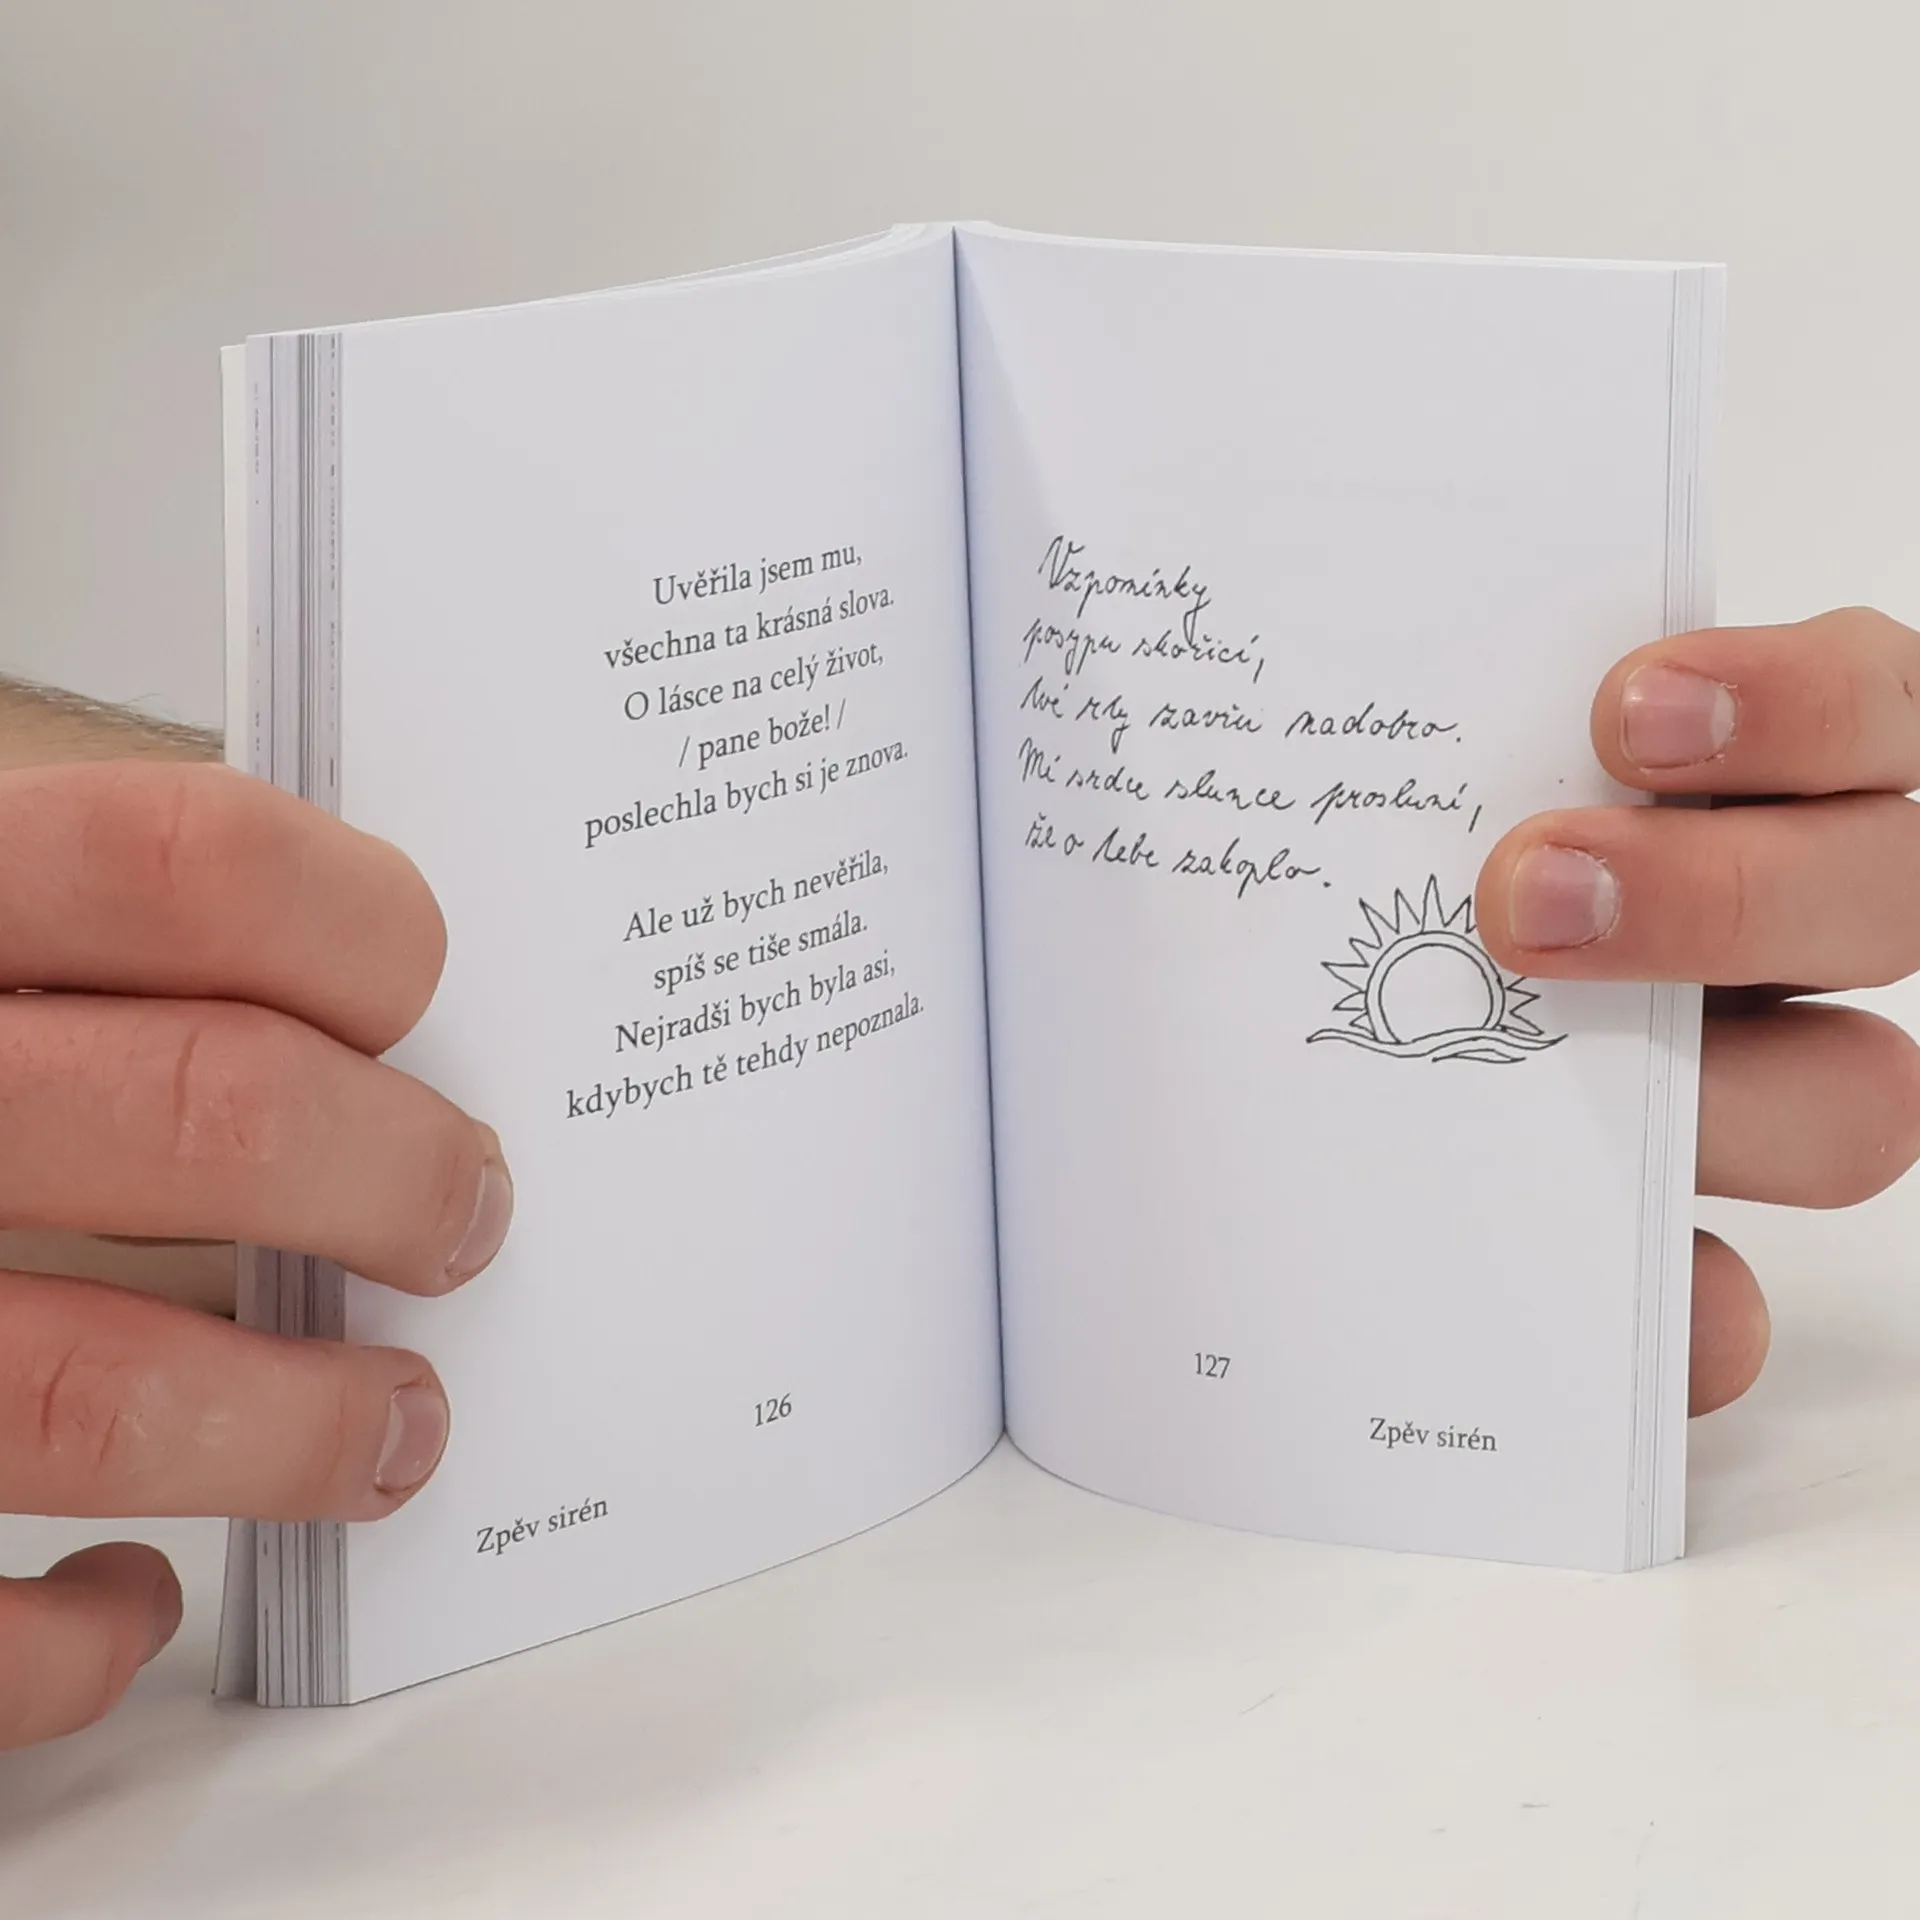 Uvěřila jsem mu,
všechna ta krásná slova.
O lásce na celý život,
/ pane bože! /
poslechla bych si je znova.
Ale už bych nevěřila,
spíš se tiše smála.
Nejradši bych byla asi,
kdybych tě tehdy nepoznala.
126
Zpěv sirén
Vzpomínky
posypu skořicí,
tvé rty zavřu nadobro.
Mé srdce slunce prosluní,
že o tebe zakoplo.
127
Zpěv sirén